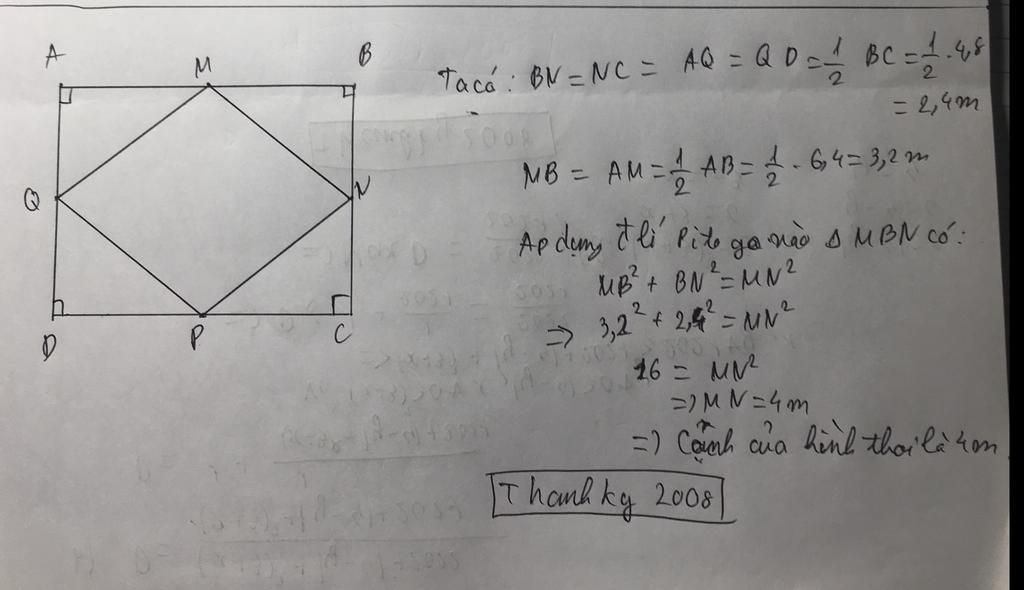 A M B
Q N
D P C
Ta có: BN = NC = AQ = QD = 1/2 BC = 1/2 . 4,8
= 2,4m
MB = AM = 1/2 AB = 1/2 . 6,4 = 3,2m
Ap dụng đ lí Pitago nào Δ MBN có:
MB² + BN² = MN²
=> 3,2² + 2,4² = MN²
16 = MN²
=> MN = 4m
=> Cạnh của hình thoi là 4m
Thanhky 2008